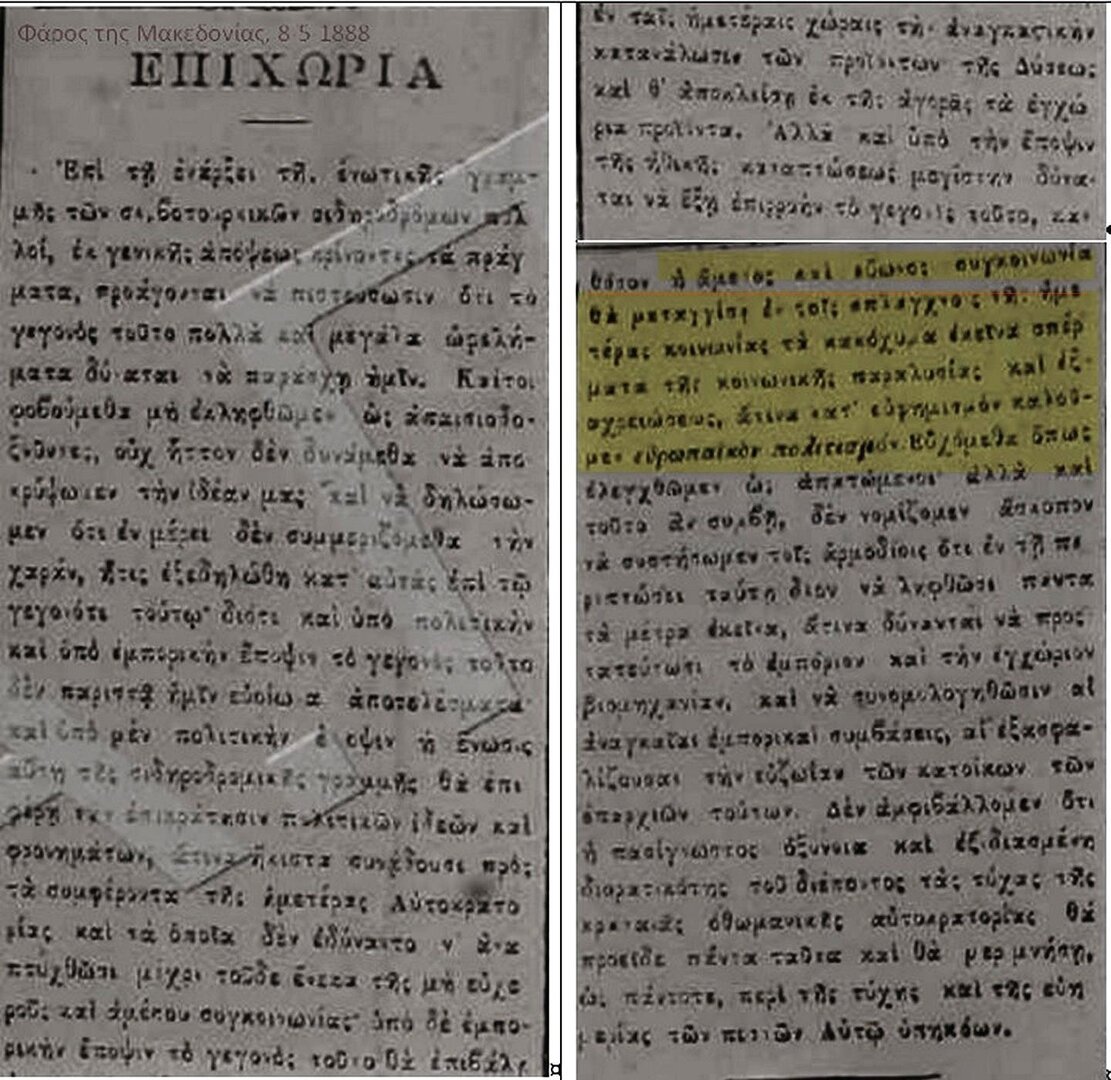 Φάρος της Μακεδονίας, 8-5-1888
ΕΠΙΧΩΡΙΑ
Ἐπὶ τῇ ἐνάρξει τῆς ἑνωτικῆς γραμ-
μῆς τῶν σιδηροδρόμων πολ
λοί, ἐκ γενικῆς ἀπόψεως κρίνοντες τὰ πράγ
ματα, προάγονται νὰ πιστεύσωσιν ὅτι τὸ
γεγονὸς τοῦτο πολλὰ καὶ μεγάλα ὠφελή-
ματα δύναται νὰ παράσχῃ ἡμῖν. Καίτοι
φοβούμεθα μὴ ἐκληφθῶμεν ὡς ἀπαισιοδο-
ξοῦντες, οὐχ ἧττον δὲν δυνάμεθα νὰ ἀπο
κρύψωμεν τὴν ἰδέαν μας καὶ νὰ δηλώσω-
μεν ὅτι ἐν μέρει δὲν συμμεριζόμεθα τὴν
χαράν, ἥτις ἐξεδηλώθη κατ' αὐτὰς ἐπὶ τῷ
γεγονότι τούτῳ· διότι καὶ ὑπὸ πολιτικὴν
καὶ ὑπὸ ἐμπορικὴν ἔποψιν τὸ γεγονὸς τοῦτο
δὲν παριστᾷ ἡμῖν εὐοίωνα ἀποτελέσματα·
καὶ ὑπὸ μὲν πολιτικὴν ἔποψιν ἡ ἕνωσις
αὕτη τῆς σιδηροδρομικῆς γραμμῆς θὰ ἐπι
φέρῃ τὴν ἐπικράτησιν πολιτικῶν ἰδεῶν καὶ
φρονημάτων, ἅτινα ἥκιστα συνᾴδουσι πρὸς
τὰ συμφέροντα τῆς ἡμετέρας Αὐτοκρατο
ρίας καὶ τὰ ὁποῖα δὲν ἐδύναντο ν' ἀνα
πτυχθῶσι μέχρι τοῦδε ἕνεκα τῆς μὴ εὐχε
ροῦς καὶ ἀμέσου συγκοινωνίας· ὑπὸ δὲ ἐμπο-
ρικὴν ἔποψιν τὸ γεγονὸς τοῦτο θὰ ἐπιβάλῃ
ἐν ταῖς ἡμετέραις χώραις τὴν ἀναγκαστικὴν
κατανάλωσιν τῶν προϊόντων τῆς Δύσεως
καὶ θ' ἀποκλείσῃ ἐκ τῆς ἀγορᾶς τὰ ἐγχώ
ρια προϊόντα. Ἀλλὰ καὶ ὑπὸ τὴν ἔποψιν
τῆς ἠθικῆς καταπτώσεως μεγίστην δύνα-
ται νὰ ἔξῃ ἐπιρροὴν τὸ γεγονὸς τοῦτο, κα-
θόσον ἡ ἄμεσος καὶ εὔωνος συγκοινωνία
θὰ μεταγγίσῃ ἐν τοῖς σπλάγχνοις τῆς ἡμε
τέρας κοινωνίας τὰ κακόχυμα ἐκεῖνα σπέρ
ματα τῆς κοινωνικῆς παραλυσίας καὶ ἐξ-
αχρειώσεως, ἅτινα κατ' εὐφημισμὸν καλοῦ-
μεν εὐρωπαϊκὸν πολιτισμόν. Εὐχόμεθα ὅπως
ἐλεγχθῶμεν ὡς ἀπατώμενοι· ἀλλὰ καὶ
τοῦτο ἂν συμβῇ, δὲν νομίζομεν ἄσκοπον
νὰ συστήσωμεν τοῖς ἁρμοδίοις ὅτι ἐν τῇ πε
ριπτώσει ταύτῃ δέον νὰ ληφθῶσι πάντα
τὰ μέτρα ἐκεῖνα, ἅτινα δύνανται νὰ προσ
τατεύσωσι τὸ ἐμπόριον καὶ τὴν ἐγχώριον
βιομηχανίαν, καὶ νὰ συνομολογηθῶσιν αἱ
ἀναγκαῖαι ἐμπορικαὶ συμβάσεις, αἱ ἐξασφα-
λίζουσαι τὴν εὐζωΐαν τῶν κατοίκων τῶν
ἐπαρχιῶν τούτων. Δὲν ἀμφιβάλλομεν ὅτι
ἡ πασίγνωστος ὀξύνοια καὶ ἐξιδιασμένη
διορατικότης τοῦ διέποντος τὰς τύχας τῆς
κραταιᾶς ὀθωμανικῆς αὐτοκρατορίας θὰ
προεῖδε πάντα ταῦτα καὶ θὰ μεριμνήσῃ,
ὡς πάντοτε, περὶ τῆς τύχης καὶ τῆς εὐη
μερίας τῶν πιστῶν Αὐτῷ ὑπηκόων.